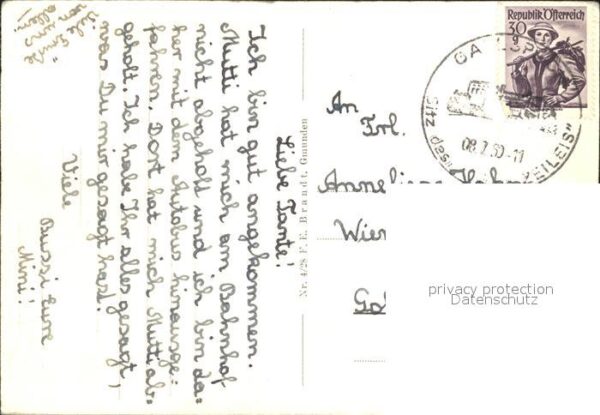 Liebe Tante!
Ich bin gut angekommen.
Mutti hat mich am Bahnhof
nicht abgeholt und ich bin da-
her mit dem Autobus hinausge-
fahren. Dort hat mich Mutti ab-
geholt. Ich habe Ihr alles gesagt,
was Du mir gesagt hast.
Viele
Bussi Eure
Mini!
Viele
von uns
allen!
Nr. 4/28 F. E. Brandt, Gmunden
Republik Österreich
30
g
Sitz des
ZEILEIS"
08.7.50-11
An
Frl.
Anneliese
Wien
privacy protection
Datenschutz